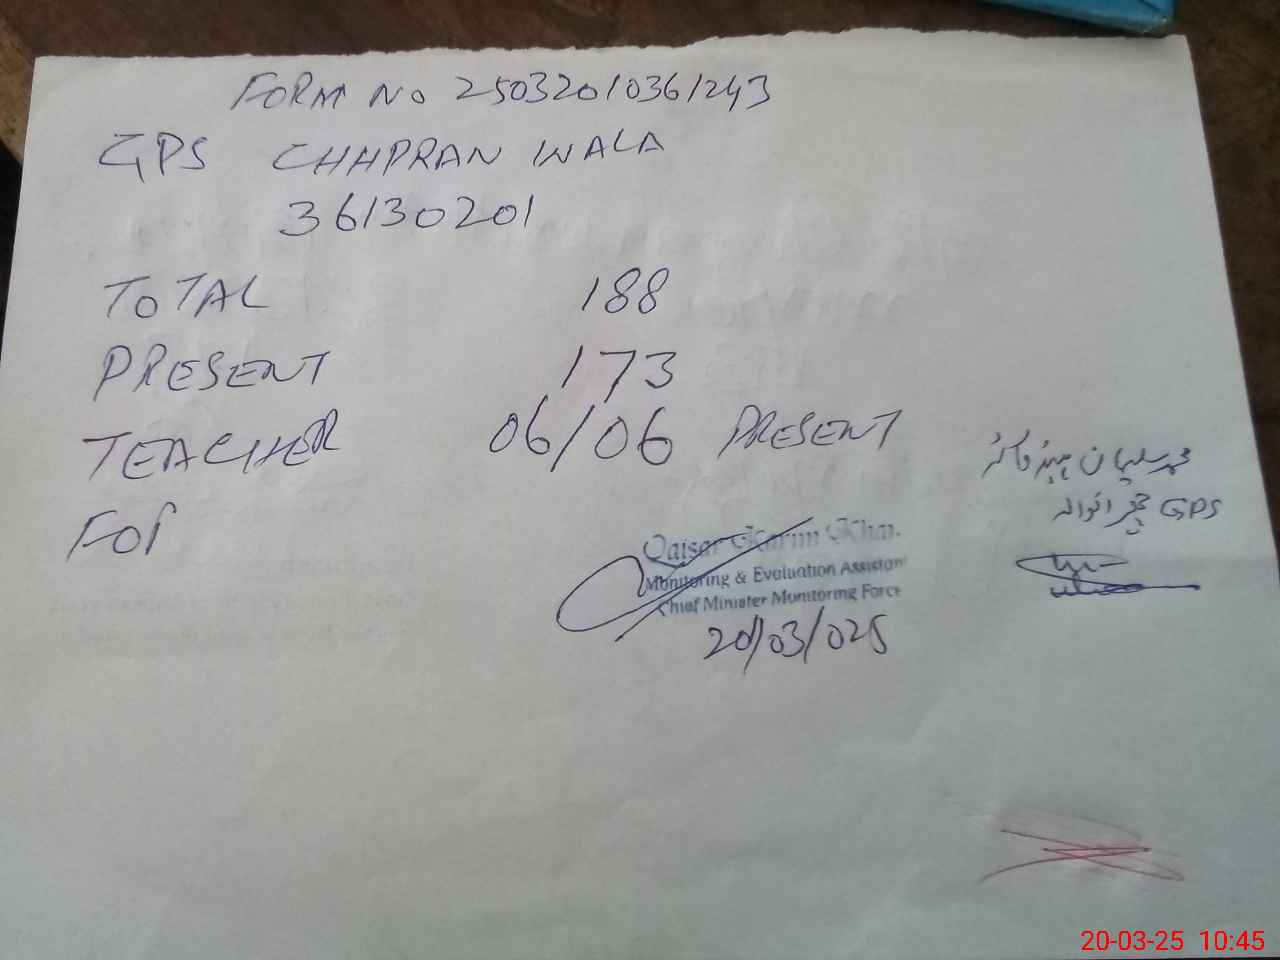 FORM No 25032010361243
GPS CHHPRAN WALA
36130201
TOTAL 188
PRESENT 173
TEACHER 06/06 PRESENT
محمد سلیمان ہیڈ
GPS
Qaisar Karim Khan
Monitoring & Evaluation Assistant
Chief Minister Monitoring Force
20/03/025
20-03-25 10:45